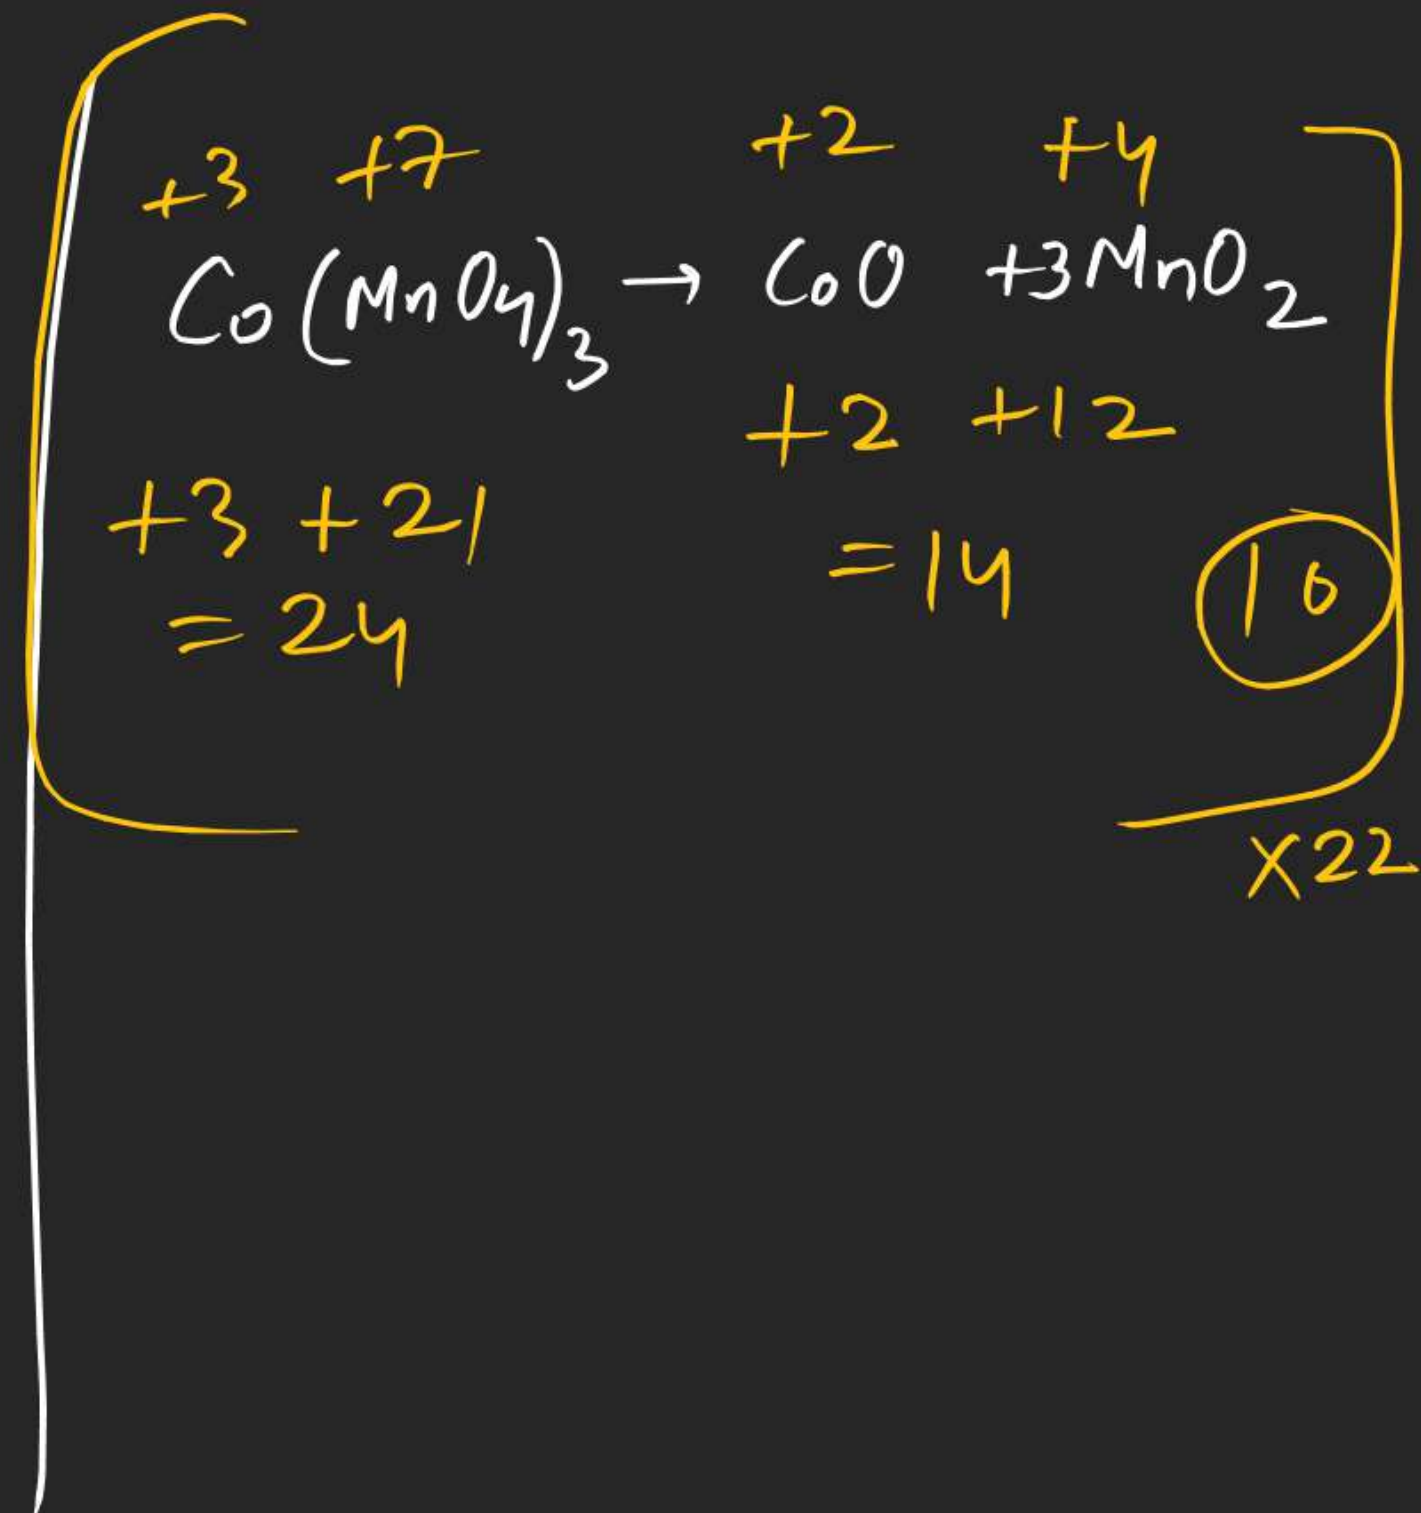 +3 +7 +2 +4
Co(MnO4)3 → CoO +3MnO2
+2 +12
+3 +21
= 14
10
= 24
X22